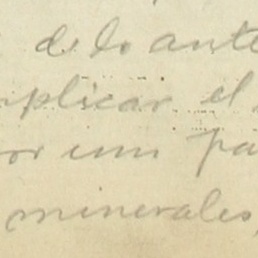 de lo ante
plicar el
or un pa
minerales,